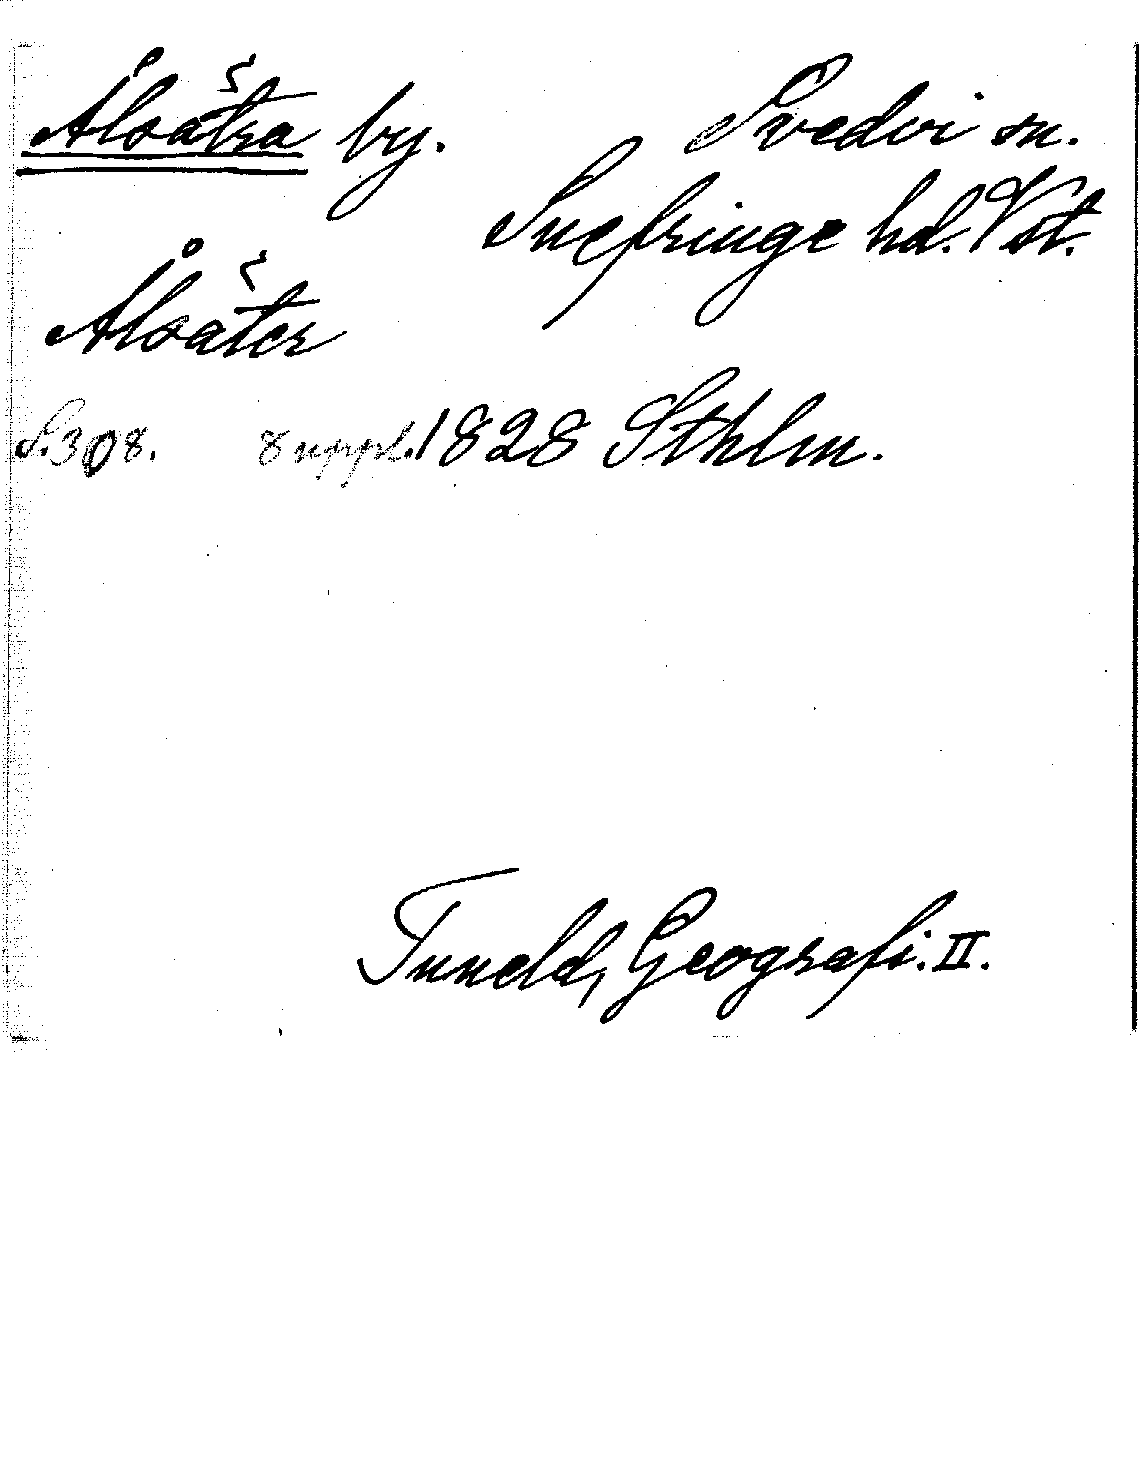 Ålsätra by. Svedvi sn.
Snefringe hd. Vst.
Ålsäter
S. 308. 8 uppl. 1828 Sthlm.
Tuneld, Geografi. II.